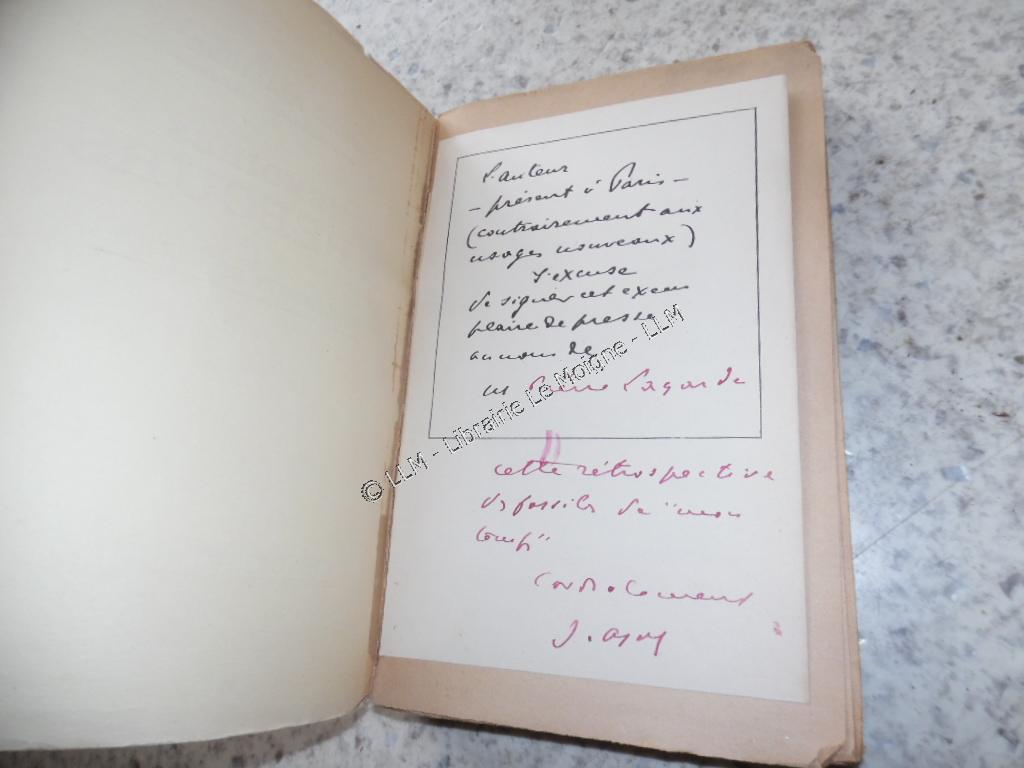 L'auteur
- présent à Paris -
(contrairement aux
usages nouveaux)
s'excuse
de signer cet exem
plaire de presse
au nom de
Pierre Lagarde
cette rétrospective
des fossiles de "mon
temps"
Cordialement
© LLM - Librairie Le Moigne - LLM